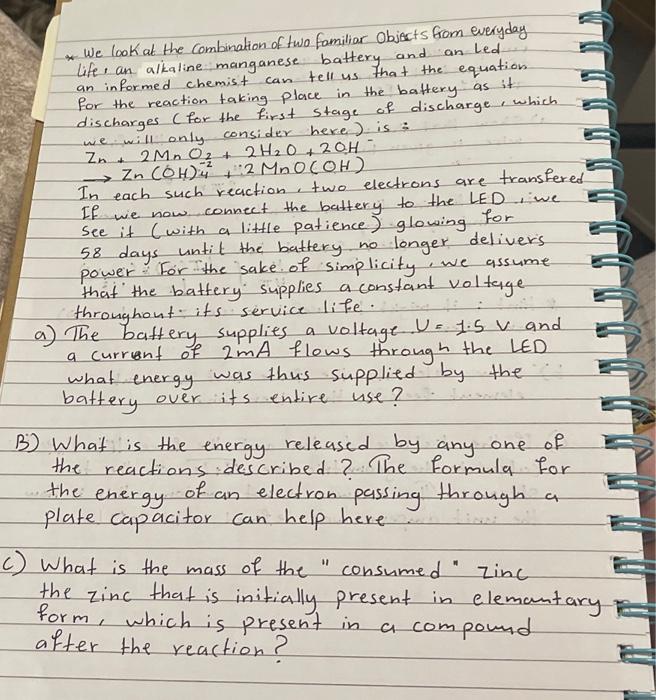 * We look at the Combination of two familiar Objects from everyday
life, an alkaline manganese battery and an Led
an informed chemist can tell us that the equation
for the reaction taking place in the battery as it
discharges (for the first stage of discharge, which
we will only consider here) is :
Zn + 2MnO2 + 2H2O + 2OH⁻
→ Zn(OH)4⁻² + 2MnO(OH)
In each such reaction, two electrons are transfered
If we now connect the battery to the LED, we
see it (with a little patience) glowing for
58 days until the battery no longer delivers
power. For the sake of simplicity, we assume
that the battery supplies a constant voltage
throughout its service life.
a) The battery supplies a voltage U = 1.5 V and
a current of 2mA flows through the LED
what energy was thus supplied by the
battery over its entire use?
B) What is the energy released by any one of
the reactions described? The formula for
the energy of an electron passing through a
plate capacitor can help here
C) What is the mass of the "consumed" zinc
the zinc that is initially present in elemantary
form, which is present in a compound
after the reaction?